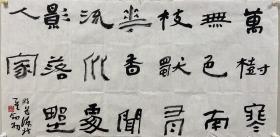 萬樹寒
無色南
枝獨有
華香聞
流水處
影落野
人家